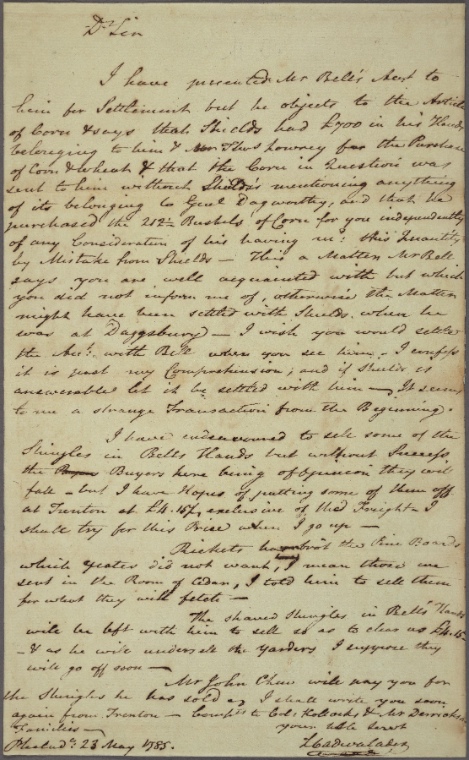 Dr Sir
I have presented Mr Bell's Acct to
him for Settlement but he objects to the Article
of Corn & says that Shields had £700 in his Hands
belonging to him & Mr Thos for the Purchase
of Corn & Wheat & that the Corn in Question was
sent to him without Shields mentioning anything
of its belonging to Genl Dagworthy, and that he
purchased the 212 Bushels of Corn for you independently
of any Consideration of his having recd this Quantity
by Mistake from Shields — This a Matter Mr Bell
says you are well acquainted with but which
you did not inform me of, otherwise the Matter
might have been settled with Shields when he
was at Daggsbury — I wish you would settle
the Acct with Bell when you see him. I confess
it is past my Comprehension; and if Shields is
answerable let it be settled with him — It seems
to me a strange Transaction from the Beginning.
I have endeavoured to sell some of the
Shingles in Bells Hands but without Success
the Buyers here being of Opinion they will
fall — but I have Hopes of putting some of them off
at Trenton at exclusive of the Freight & I
shall try for this Price when I go up —
Rickets has the Pine Boards
which Yeates did not want, I mean those we
sent in the Room of Cedar, I told him to sell them
for what they will fetch —
The shaved Shingles in Bell's Hands
will be left with him to sell so as to clear us
— & as he will undersell the Yarders I suppose they
will go off soon —
Mr John Chew will pay you for
the Shingles he has sold & I shall write you soon
again from Trenton — Compts to Col: Pollocks & Mr Derricksons
Families —
your able Servt
Philad: 23 May 1785.
L Cadwalader